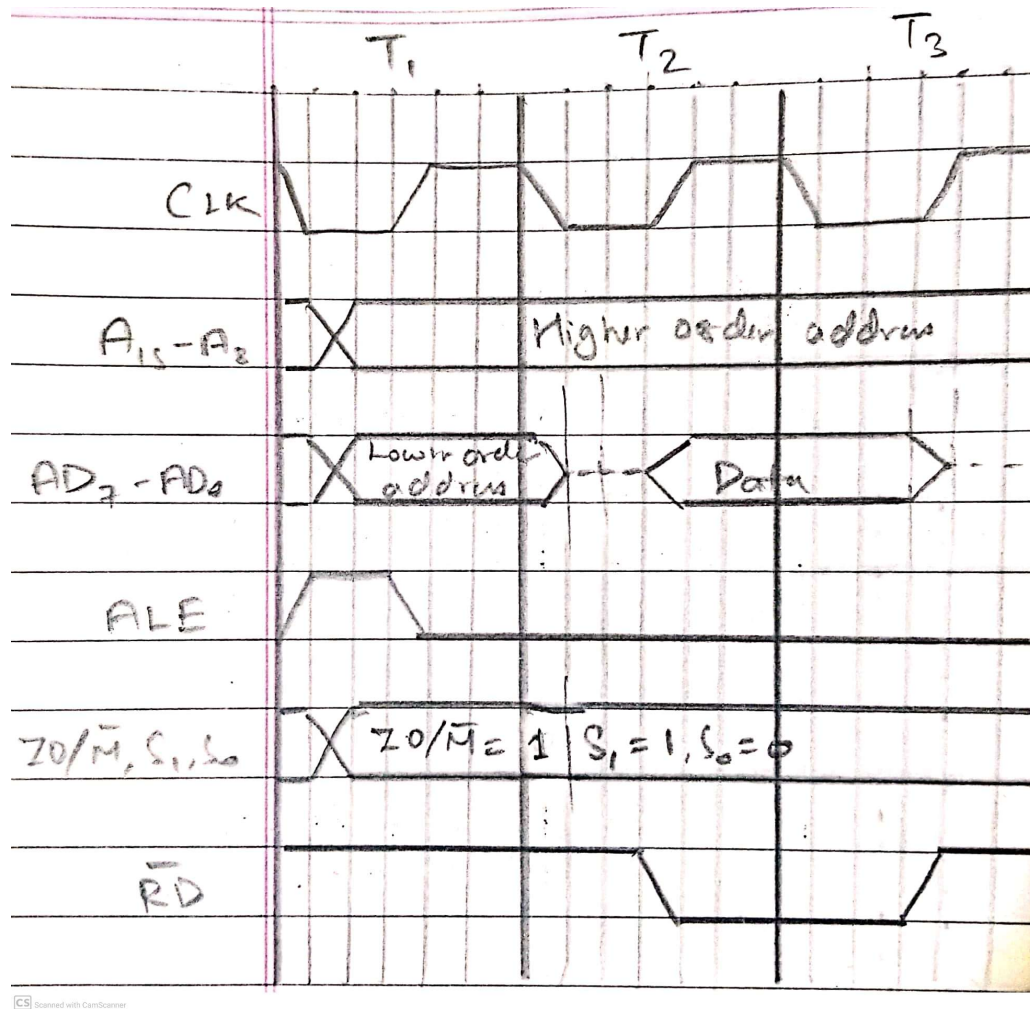 T₁ T₂ T₃
CLK
A₁₅-A₈
Higher order address
AD₇-AD₀
Lower order
address
Data
ALE
IO/M̄, S₁, S₀
IO/M̄ = 1 S₁ = 1, S₀ = 0
R̄D̄
CS Scanned with CamScanner